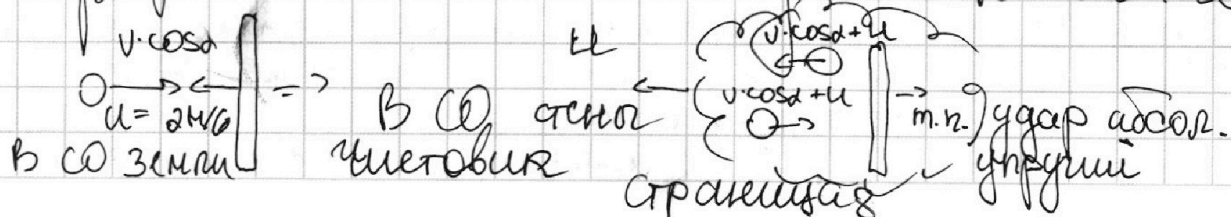 v·cosα
u = 2м/с
В СО земли
=>
В СО стены
u
v·cosα+u
v·cosα+u
т.к.
удар абсол.
упругий
чистовик
страница 8